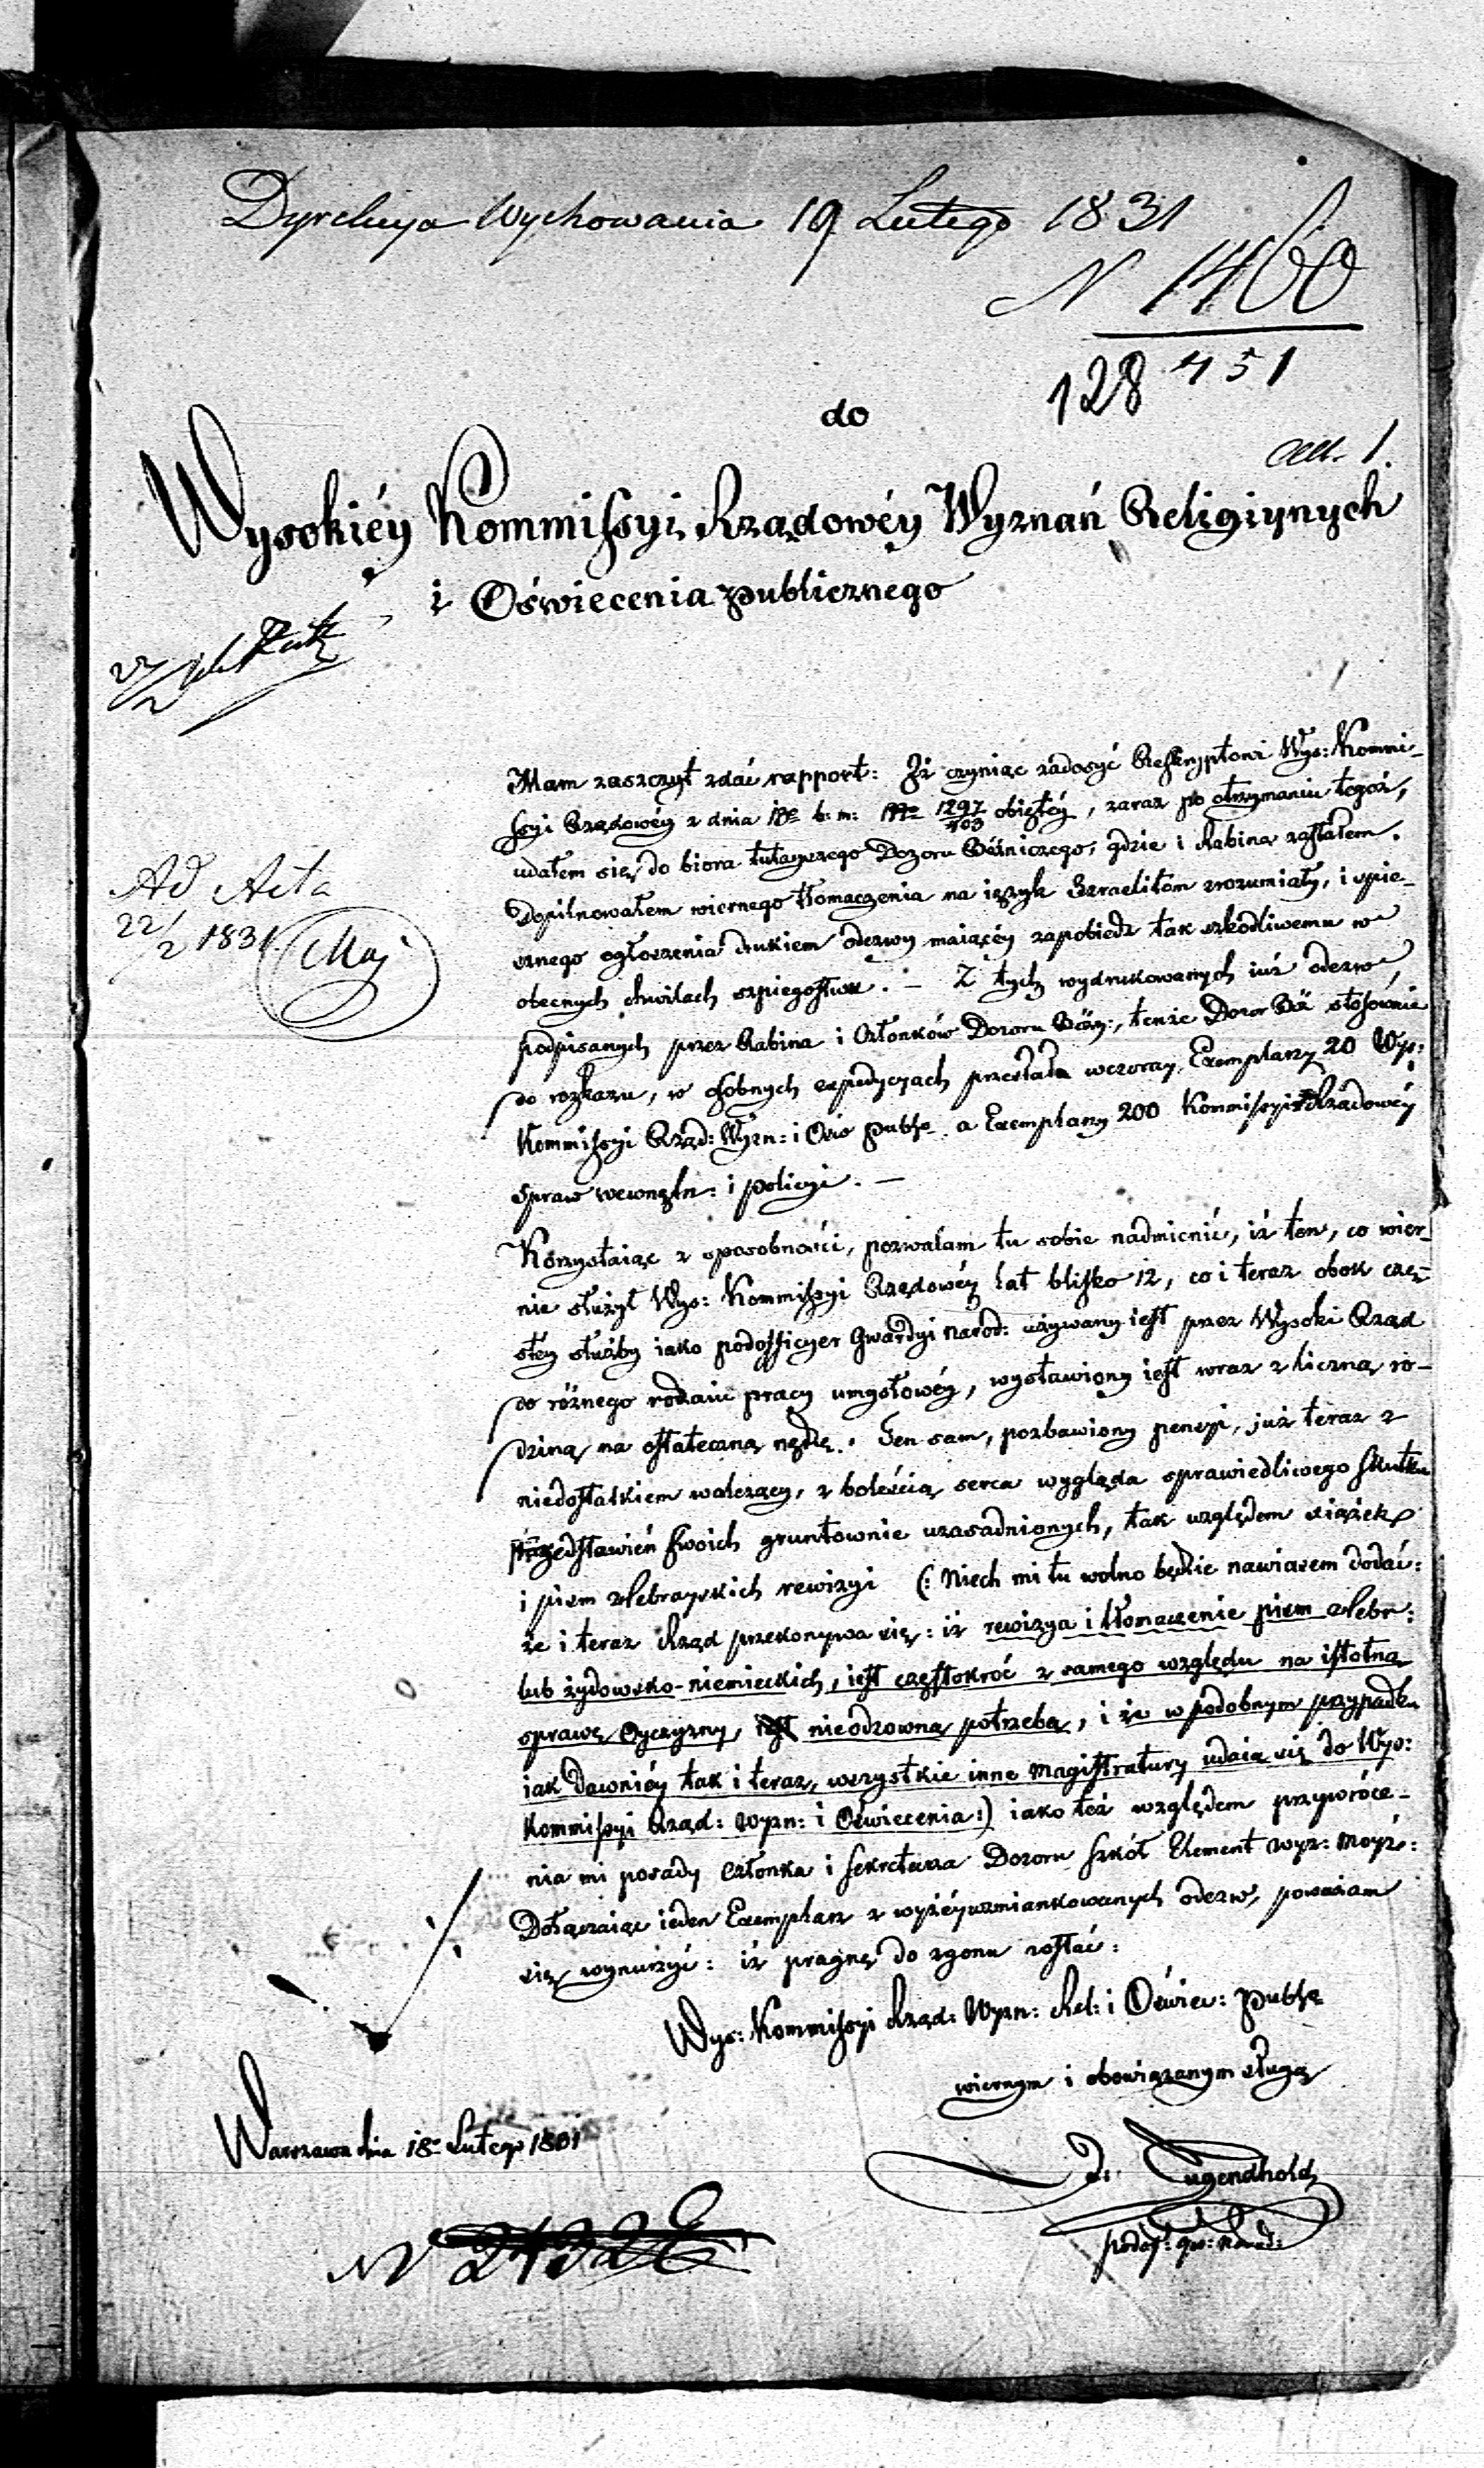 Dyrekcya Wychowania 19 Lutego 1831
N 1460
128 451
all. 1.
do
Wysokiéy Kommissyi Rządowéy Wyznań Religiynych
i Oświecenia publicznego
Ad Acta
22/2 1831.
Mam zaszczyt zdać rapport: Iż czyniąc zadosyć Reskryptowi Wys: Kommi-
ssyi Rządowéy z dnia b: m: 1297/403 obiętéy, zaraz po otrzymaniu tegoż,
udałem się do biora tutayszego Dozoru Bóżniczego, gdzie i Rabina zastałem.
Dopilnowałem wiernego tłomaczenia na ięzyk Izraelitom zrozumiały, i spie-
sznego ogłoszenia drukiem odezwy maiącéy zapobiedz tak szkodliwemu w
obecnych chwilach szpiegostwu. — Z tych wydrukowanych iuż odezw,
podpisanych przez Rabina i Członków Dozoru Bóżn:, tenże Dozor Bó: stosównie
do rozkazu, w osobnych expedycyach przesłał wczoray Exemplarzy 20 Wys:
Kommissyi Rząd: Wyzn: i Ośw publ: a Exemplarzy 200 Kommissyi Rządowéy
spraw wewnętr: i policyi. —
Korzystaiąc z sposobności, pozwalam tu sobie nadmienić, iż ten, co wier-
nie służył Wys: Kommissyi Rządowéy lat blisko 12, co i teraz obok czę-
stéy służby iako podofficyer Gwardyi Narod: używany iest przez Wysoki Rząd
do różnego rodzaiu pracy umysłowéy, wystawiony iest wraz z liczną ro-
dziną na ostateczną nędzę. Ten sam, pozbawiony pensyi, już teraz z
niedostatkiem walczący, z boleścią serca wygląda sprawiedliwego skutku
przedstawień swoich gruntownie uzasadnionych, tak względem xiążek
i pism Hebrayskich rewizyi (: Niech mi tu wolno będzie nawiasem dodać:
że i teraz Rząd przekonywa się: iż rewizya i tłomaczenie pism Hebr:
lub żydowsko-niemieckich, iest częstokroć z samego względu na istotną
sprawę Oyczyzny, iest nieodzowną potrzebą, i że w podobnym przypadku
iak dawniéy tak i teraz, wszystkie inne Magistratury udaią się do Wys:
Kommissyi Rząd: Wyzn: i Oświecenia:) iako też względem przywróce-
nia mi posady Członka i Sekretarza Dozoru Szkół Element wyz: Moyż:
Dołączaiąc ieden Exemplarz z wyżéywzmiankowanych odezw, poważam
się wynurzyć: iż pragnę do zgonu zostać:
Wys: Kommissyi Rząd: Wyzn: Rel: i Oświec: publ:
wiernym i obowiązanym sługą
J: Tugendhold
podof: gw: Narod:
Warszawa dnia 18 Lutego 1831